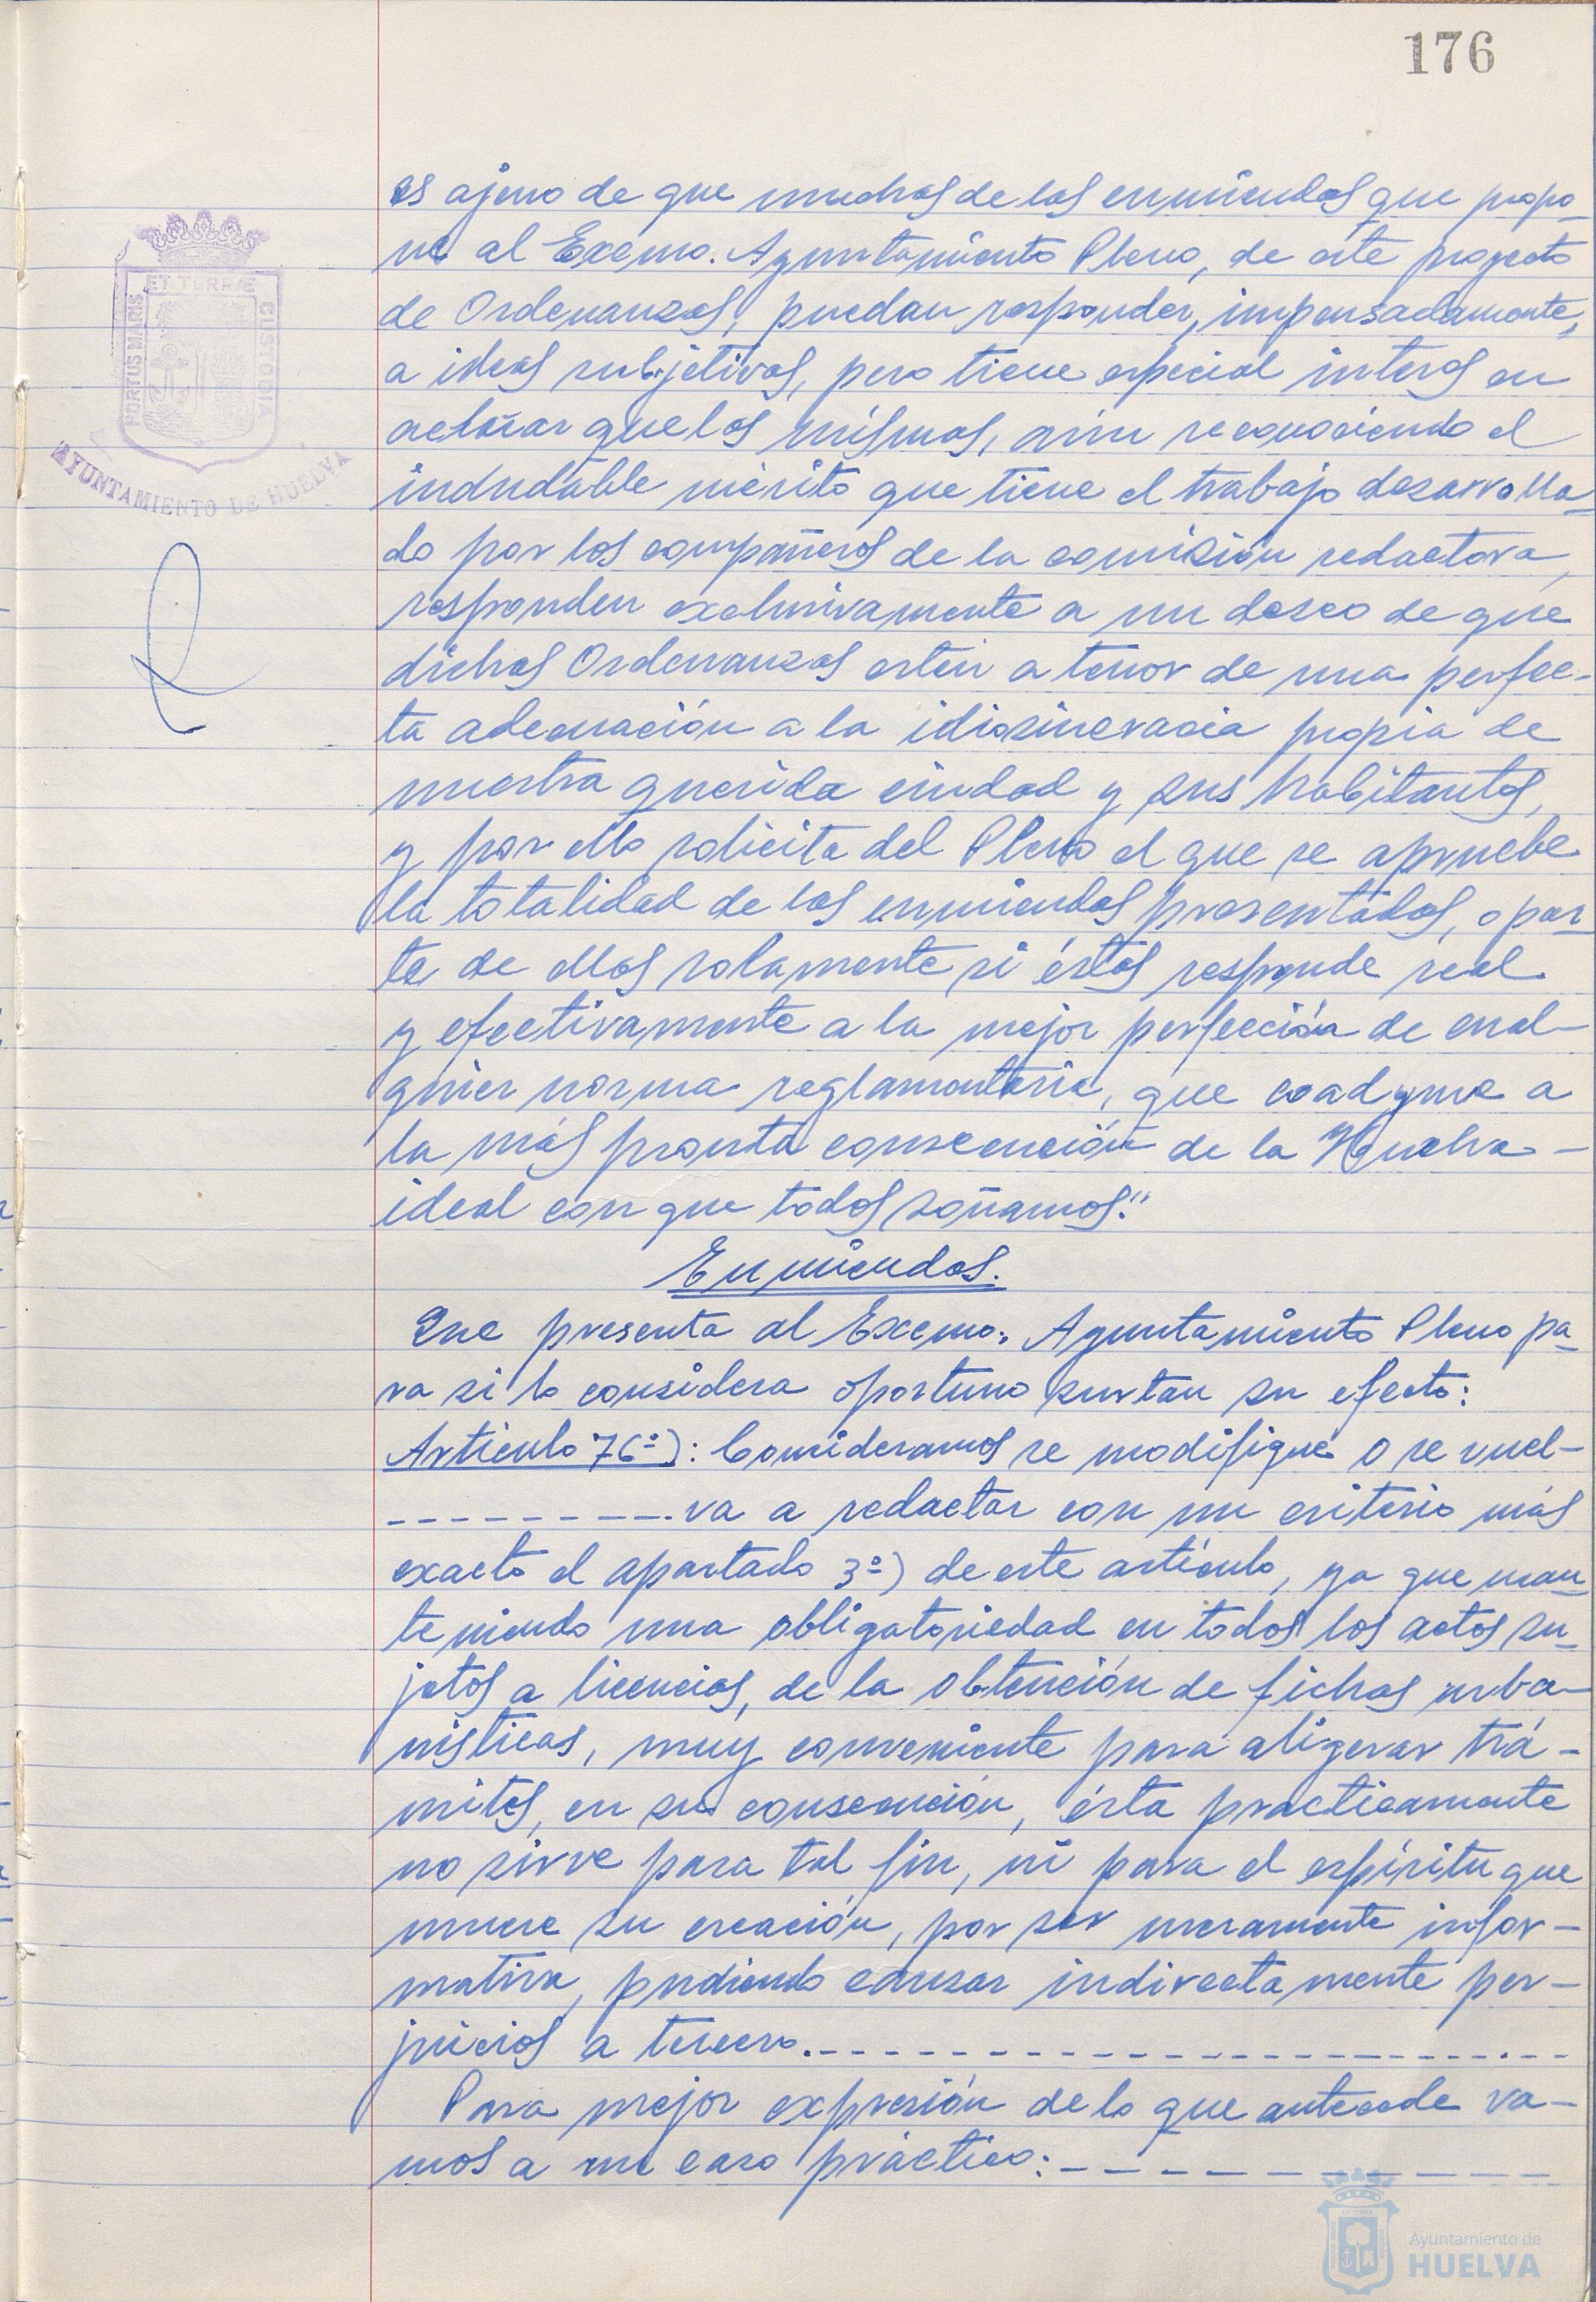 176
ET TERRAE
PORTUS MARIS
CUSTODIA
AYUNTAMIENTO DE HUELVA
es ajeno de que muchas de las enmiendas que propo-
ne al Excmo. Ayuntamiento Pleno, de este proyecto
de Ordenanzas, puedan responder, impensadamente,
a ideas subjetivas, pero tiene especial interes en
aclarar que las mismas, aún reconociendo el
indudable mérito que tiene el trabajo desarrolla-
do por los compañeros de la comisión redactora,
responden exclusivamente a un deseo de que
dichas Ordenanzas estén a tenor de una perfec-
ta adecuación a la idiosincracia propia de
nuestra querida ciudad y sus habitantes,
y por ello solicita del Pleno el que se apruebe
la totalidad de las enmiendas presentadas, o par-
te de ellas solamente si éstas responde real
y efectivamente a la mejor perfección de cual-
quier norma reglamentaria, que coadyuve a
la más pronta consecución de la Huelva-
ideal con que todos soñamos."
Enmiendas.
Que presenta al Excmo. Ayuntamiento Pleno pa-
ra si lo considera oportuno surtan su efecto:
Artículo 76º): Consideramos se modifique o se vuel-
- - - - - - - - - - va a redactar con un criterio más
exacto el apartado 3º) de este artículo, ya que man-
teniendo una obligatoriedad en todos los actos su-
jetos a licencias, de la obtención de fichas urba-
nísticas, muy conveniente para aligerar trá-
mites, en su consecución, ésta practicamente
no sirve para tal fin, ni para el espíritu que
mueve su creación, por ser meramente infor-
mativa, pudiendo causar indirectamente per-
juicios a tercero. - - - - - - - - - - - - - - - - - - - -
Para mejor expresión de lo que antecede va-
mos a un caso práctico: - - - - - - - - - - - -
Ayuntamiento de
HUELVA